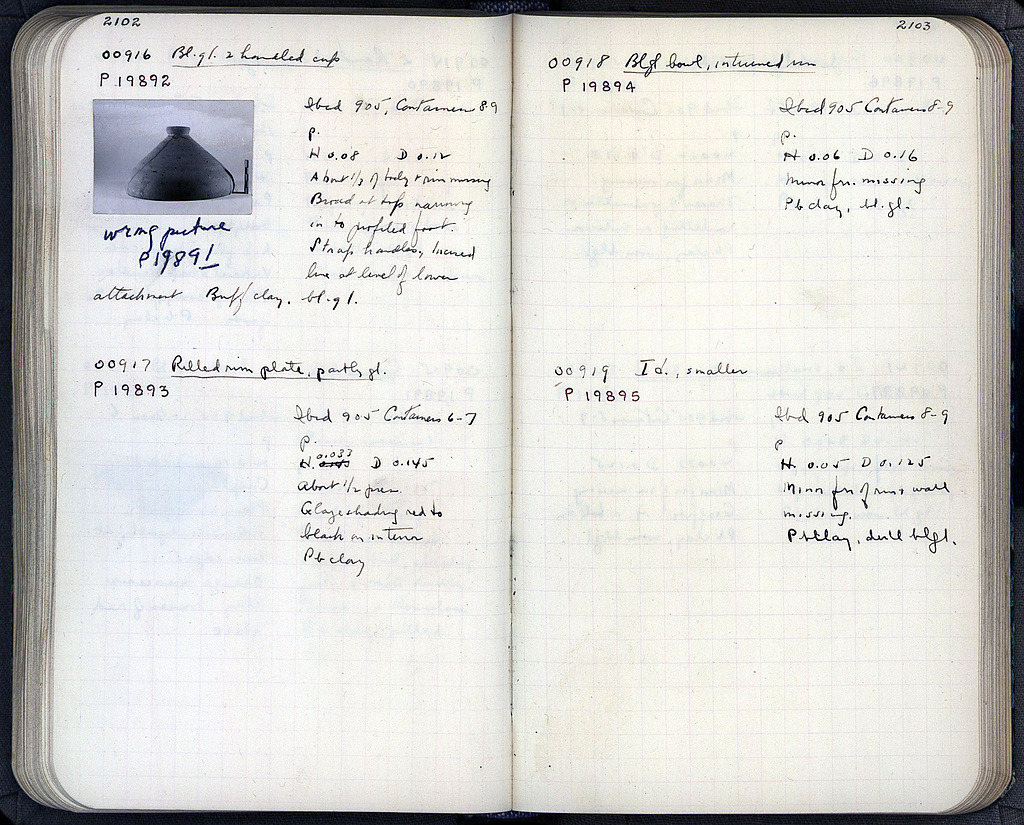 2102
00916 Bl. gl. 2 handled cup
P 19892
Ibid 905, Containers 8-9
P.
H 0.08 D 0.12
About 1/3 of body & rim missing
Broad at top narrowing
in to profiled foot.
Strap handles, Incised
line at level of lower
attachment Buff clay, bl. gl.
wrong picture
P 19891
00917 Rilled rim plate, partly gl.
P 19893
Ibid 905 Containers 6-7
P.
0.033
H. D 0.145
About 1/2 pres.
Glaze shading red to
black on interior
Pb clay
2103
00918 Blgl bowl, inturned rim
P 19894
Ibid 905 Containers 8-9
P.
H 0.06 D 0.16
Minor frr. missing
Pb clay, bl. gl.
00919 Id., smaller
P 19895
Ibid 905 Containers 8-9
P
H. 0.05 D 0.125
Minor frr of rim & wall
missing.
Pb clay, dull blgl.